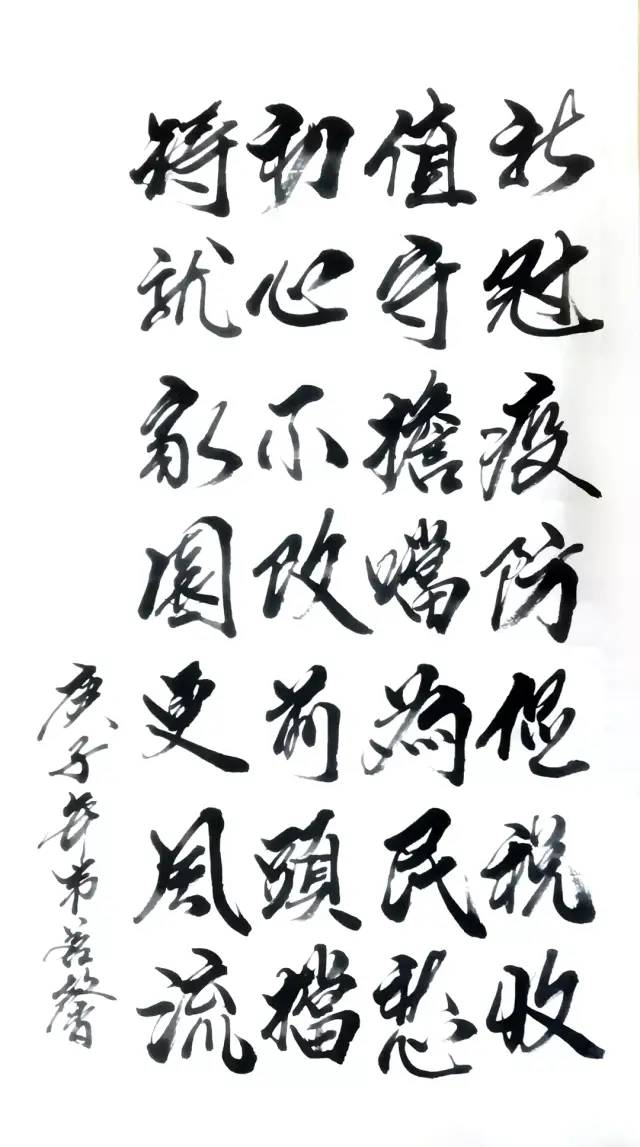 新冠疫防促税收
值守擔噹為民愁
初心不改前頭擋
铸就家園更風流
庚子年若馨